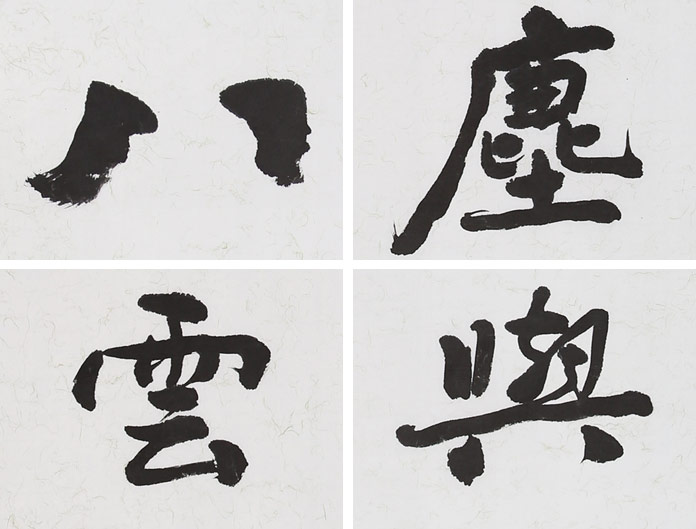 八
塵
雲
與